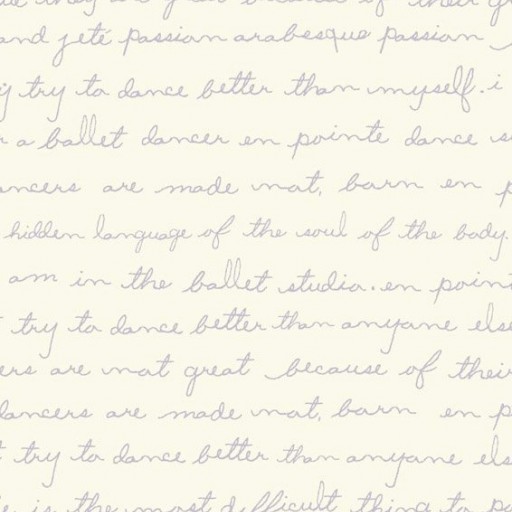 they are great because of their
and jeté passion arabesque passion
try to dance better than myself. i
a ballet dancer en pointe dance
are made not, born en
hidden language of the soul of the body.
am in the ballet studio. en
try to dance better than anyone else
are not great because of their
dancers are made not, born en
try to dance better than anyone
is the most difficult thing to